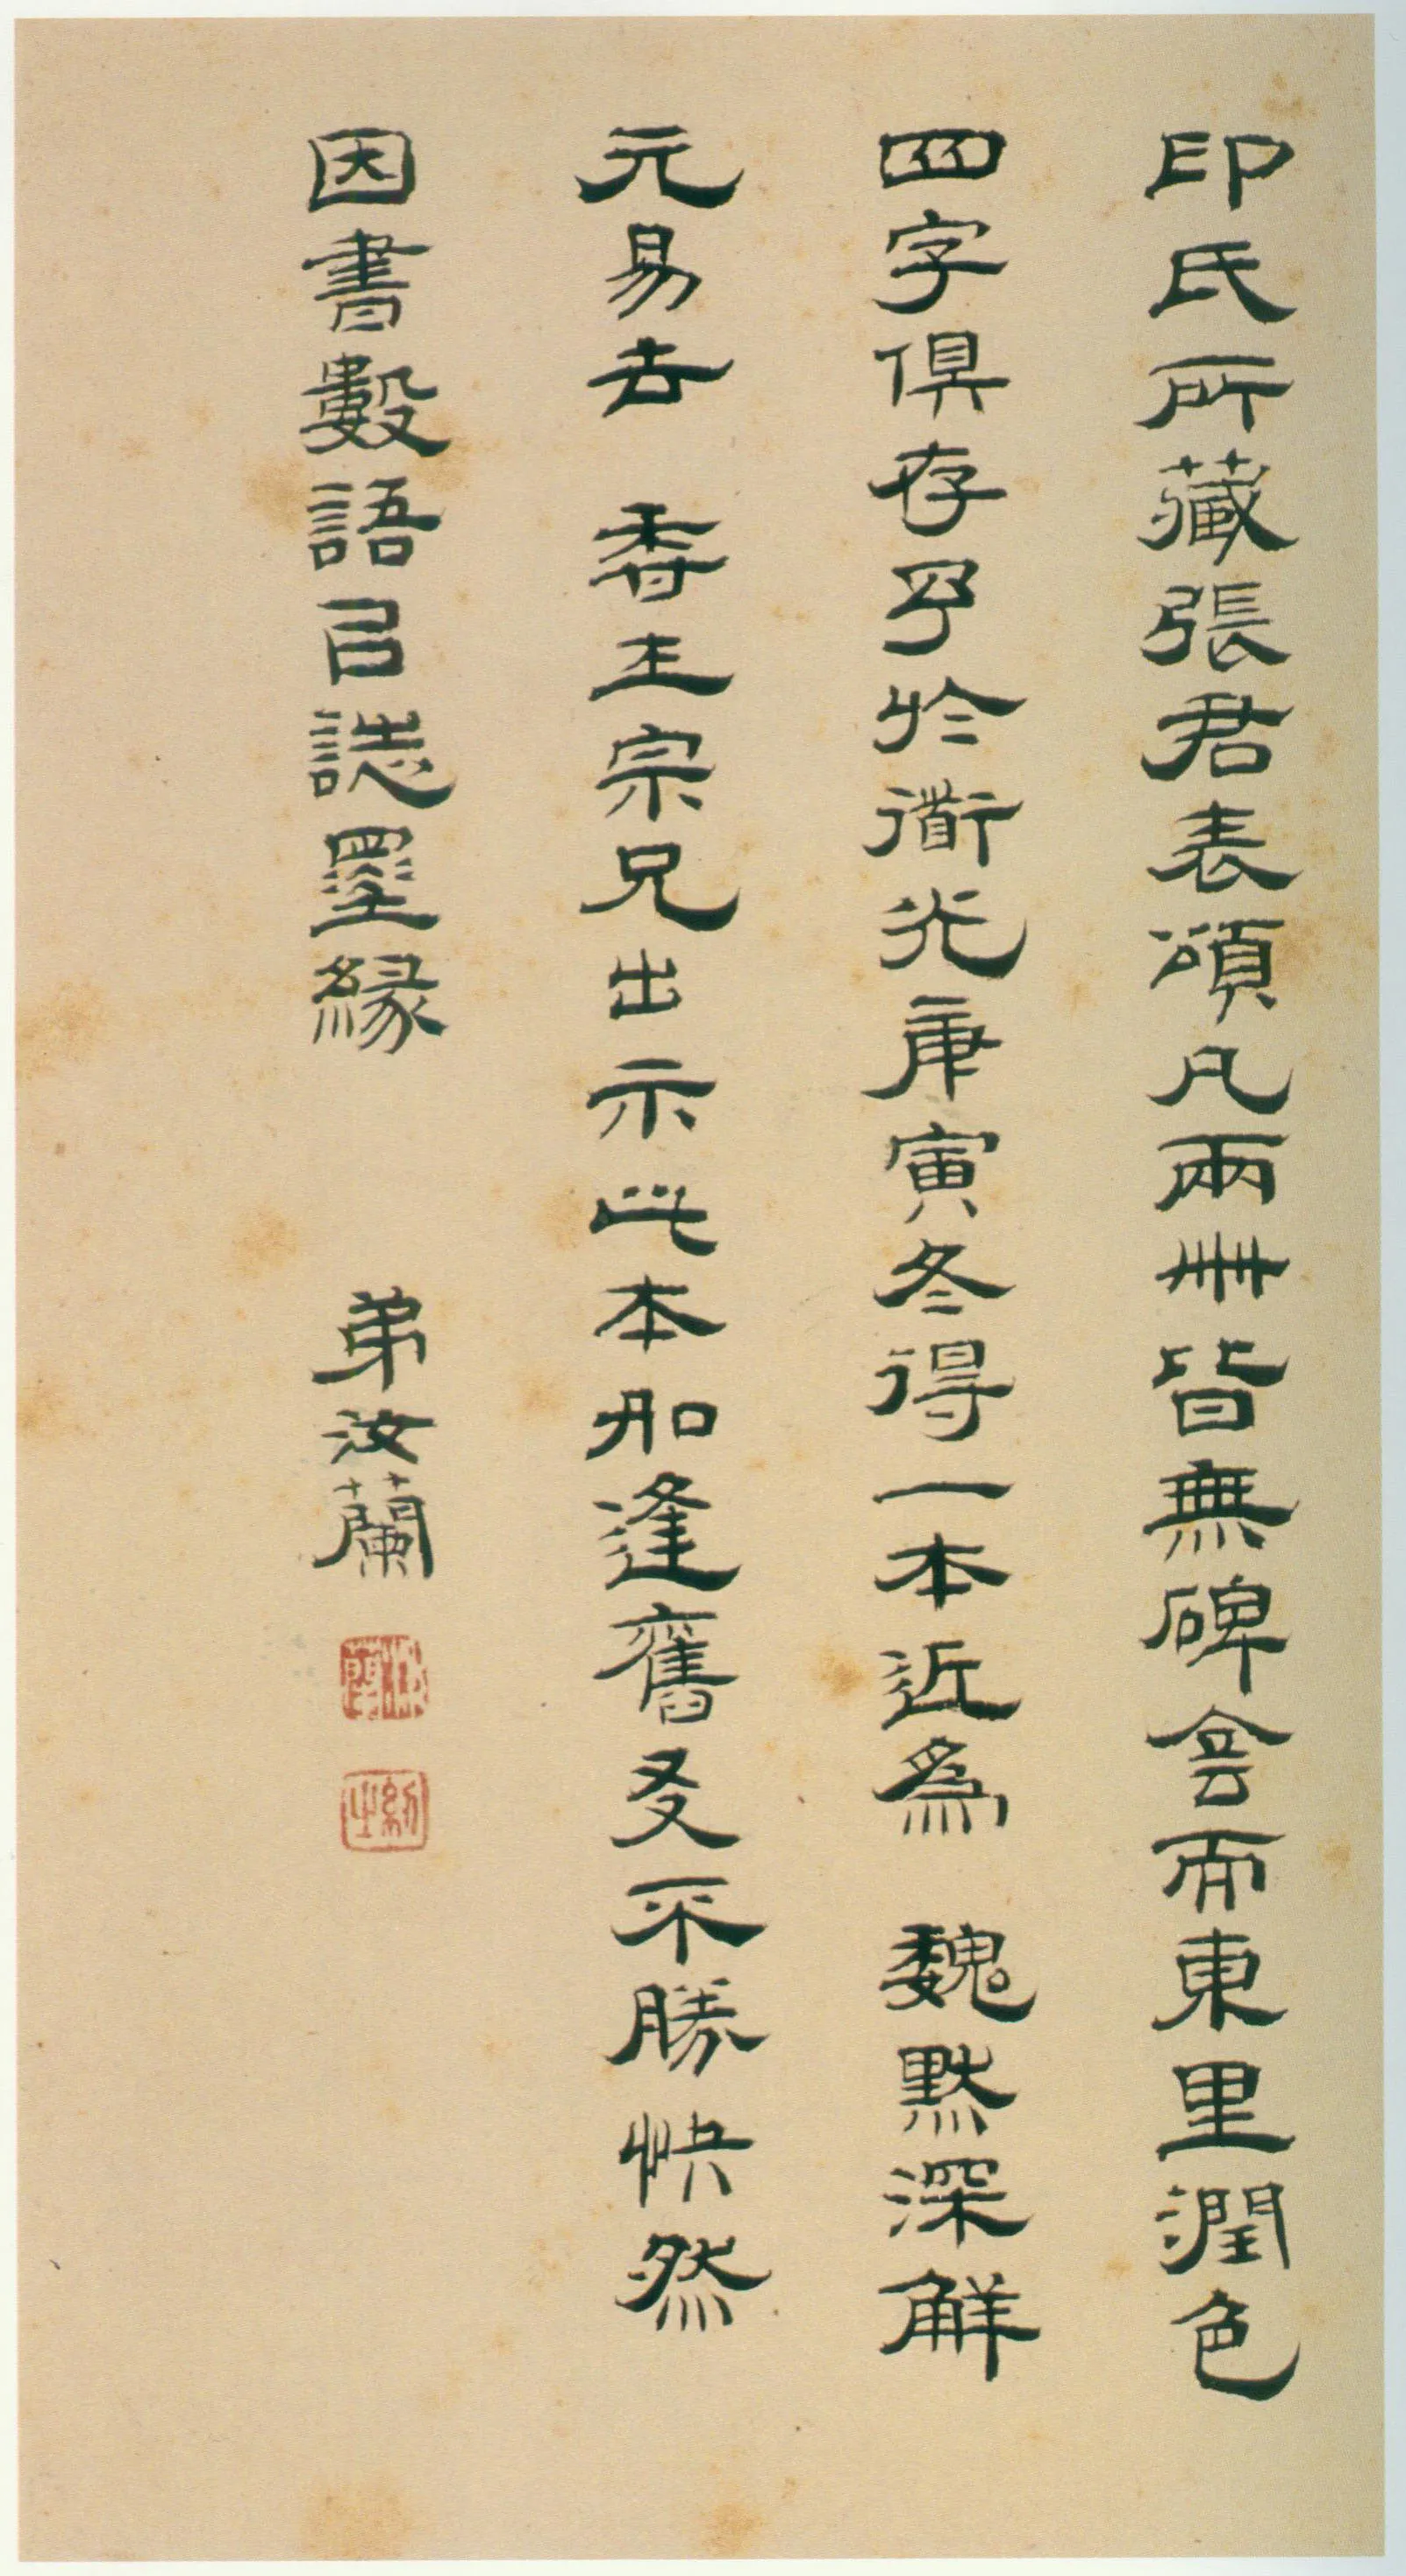 印氏所藏張君表頌凡兩冊皆無碑侌而東里潤色
四字俱存予於衜光庚寅冬得一本近為 魏默深解
元易去 香生宗兄出示此本如逢舊友不勝快然
因書數語㠯誌墨緣 弟汝蘭
汝蘭
紉之